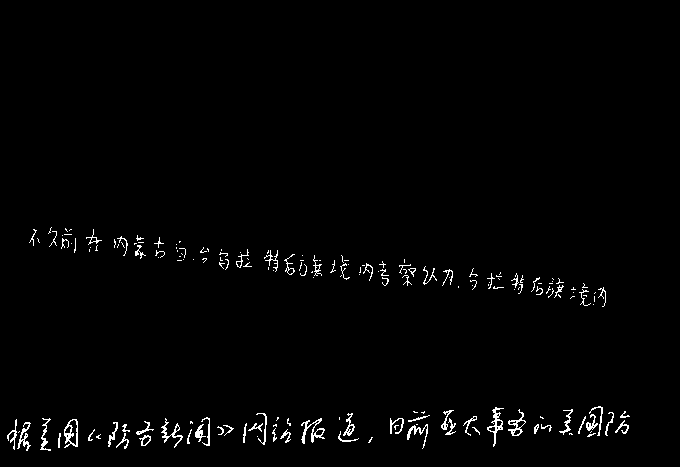 不久前在内蒙古自.今乌拉特后旗境内考察认为.今拉特后旗境内
据美国《防务新闻》网站报道,日前亚太事务的美国防